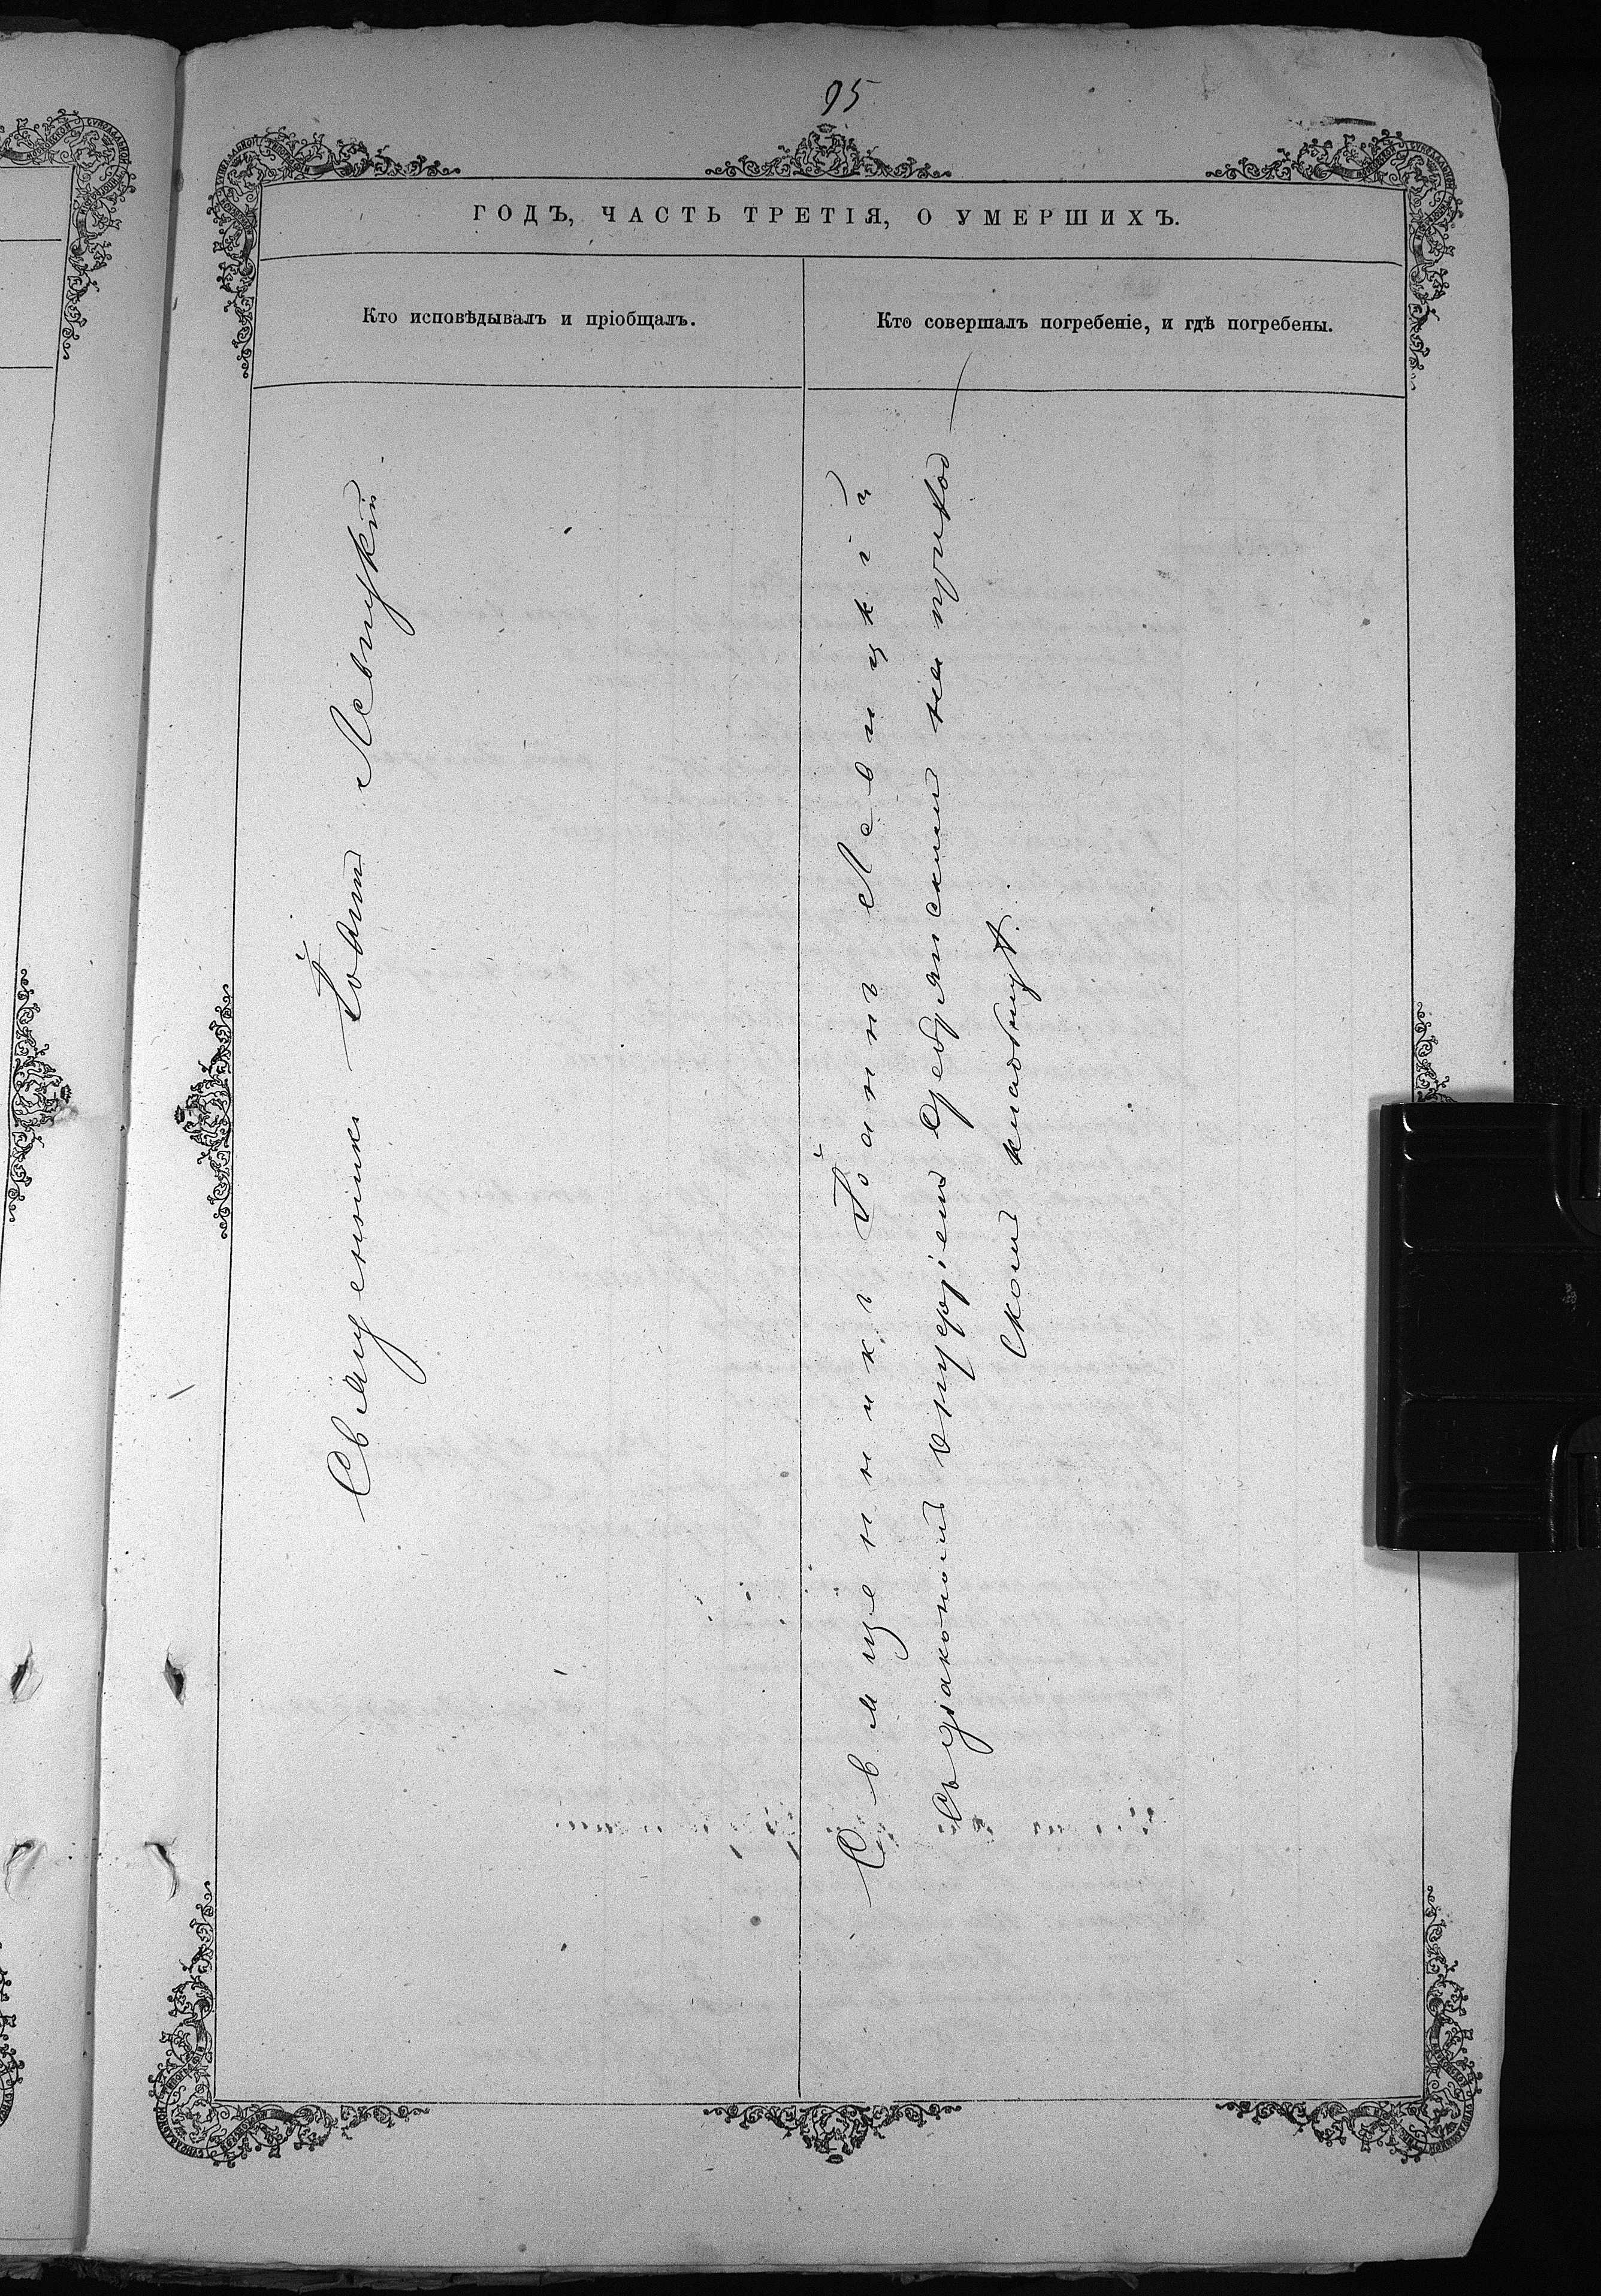 95
ГОДЪ, ЧАСТЬ ТРЕТІЯ, О УМЕРШИХЪ.
Кто исповѣдывалъ и пріобщалъ.
Кто совершалъ погребеніе, и гдѣ погребены.
Священникъ Іоаннъ Левицкій
Священникъ Іоаннъ Левицкій
Съ діакономъ Сребрянскимъ на приход
скомъ кладбищѣ.